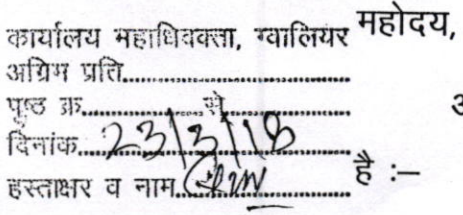 कार्यालय महाधिवक्ता, ग्वालियर महोदय,
अग्रिम प्रति..............................
पृष्ठ क्र....................से....................
दिनांक.....23/3/18
हस्ताक्षर व नाम.................... है :–